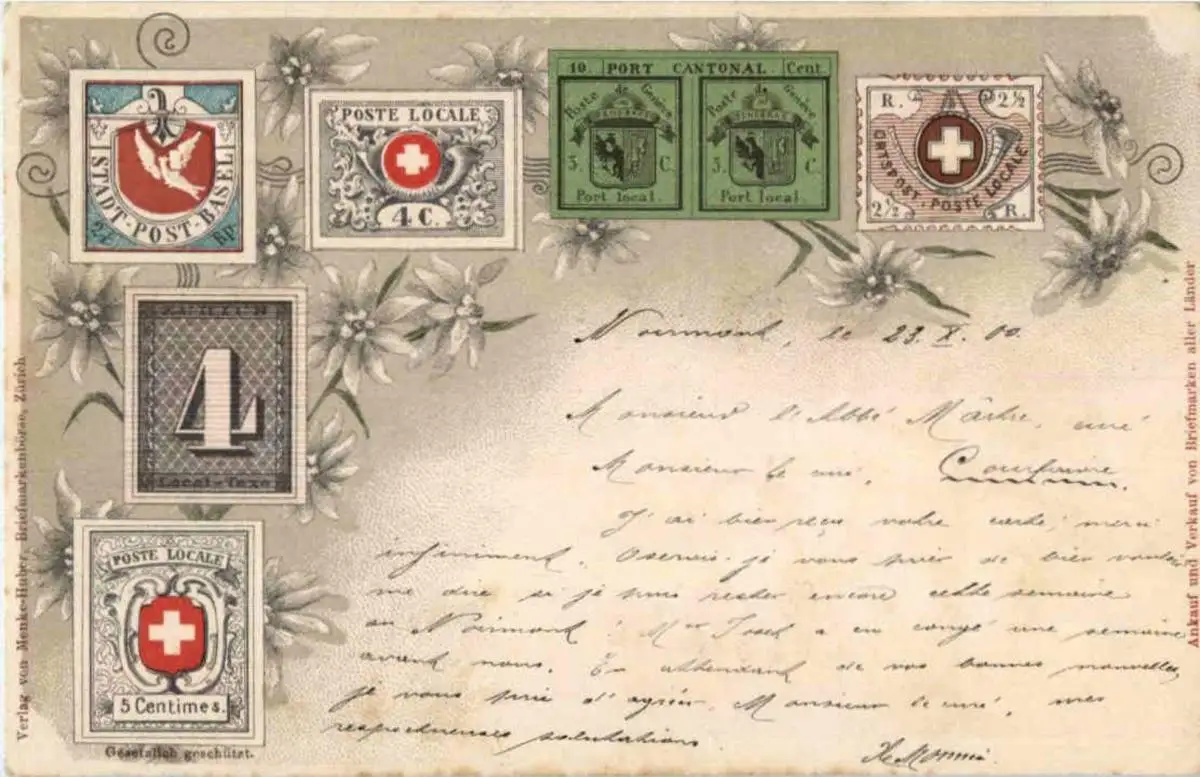 STADT-POST-BASEL
2½ RP.
POSTE LOCALE
4 C.
10. PORT CANTONAL. Cent.
Poste de Genève Poste de Genève
5 C. 5 C.
Port local. Port local.
R. 2½
ORTSPOST-POSTE LOCALE
2½ R.
ZÜRICH
4
Local-Taxe
POSTE LOCALE
5 Centimes.
Gesetzlich geschützt.
Verlag von Menke-Huber, Briefmarkenbörse, Zürich
Ankauf und Verkauf von Briefmarken aller Länder
Noirmont, le 23. X. 00.
Monsieur l'Abbé curé
Monsieur le curé, Courfaivre.
J'ai bien reçu votre carte, merci
infiniment. Oserais-je vous prier de bien vouloir
me dire si je puis rester encore cette semaine
au Noirmont! Mer a eu congé une semaine
avant nous. En attendant de vos bonnes nouvelles,
je vous prie d'agréer, Monsieur le curé, mes
respectueuses salutations.